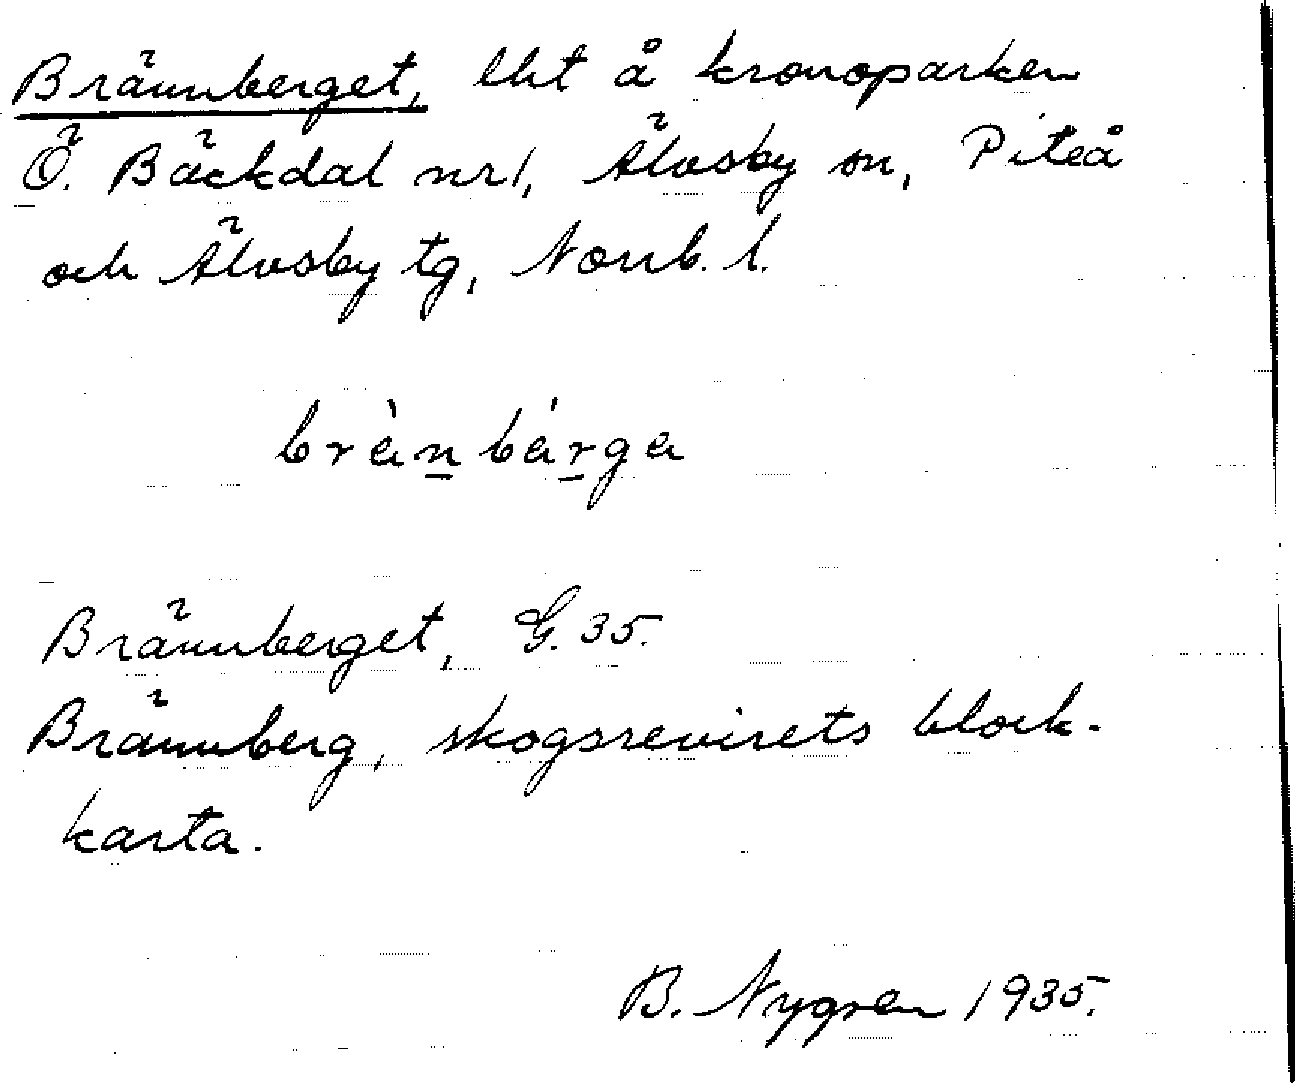 Brännberget, lht å kronoparken
Ö. Bäckdal nr 1, Älvsby sn, Piteå
och Älvsby tg, Norrb. l.
brä̀n̲bä́r̲ga
Brännberget, G. 35.
Brännberg, skogsrevirets block-
karta.
B. Nygren 1935.